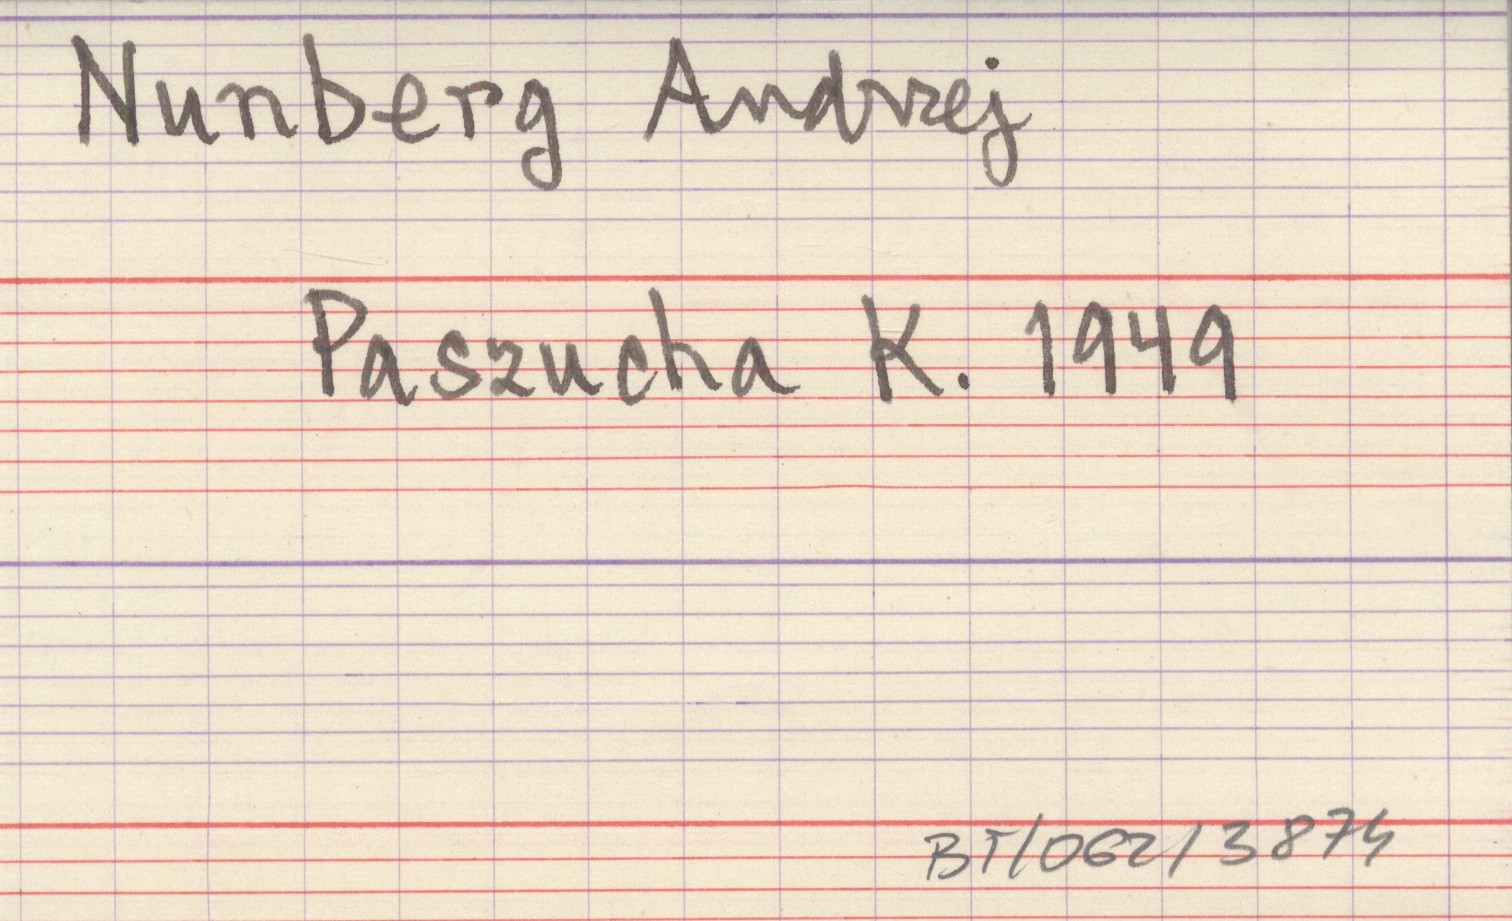 Nunberg Andrzej
Paszucha K. 1949
BT/062/3874